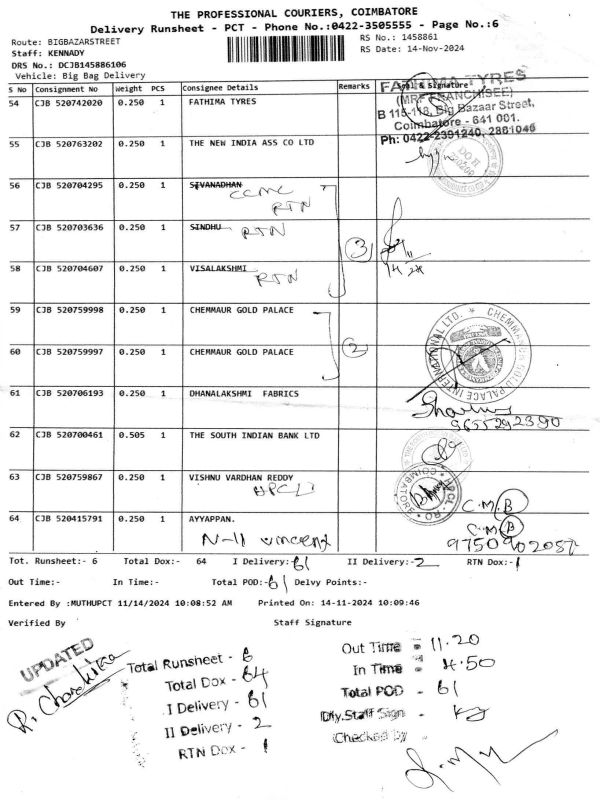 THE PROFESSIONAL COURIERS, COIMBATORE
Delivery Runsheet - PCT - Phone No.:0422-3505555 - Page No.:6
Route: BIGBAZARSTREET
Staff: KENNADY
DRS No.: DCJB145886106
Vehicle: Big Bag Delivery
RS No.: 1458861
RS Date: 14-Nov-2024
S No Consignment No Weight PCS Consignee Details Remarks & Signature
54 CJB 520742020 0.250 1 FATHIMA TYRES
FATHIMA TYRES
(MRF FRANCHISEE)
B 115-118, Big Bazaar Street,
Coimbatore - 641 001.
Ph: 0422-2391240, 2381040
55 CJB 520763202 0.250 1 THE NEW INDIA ASS CO LTD
56 CJB 520704295 0.250 1 SIVANADHAN
CCMC
RTN
57 CJB 520703636 0.250 1 SINDHU RTN
3
58 CJB 520704607 0.250 1 VISALAKSHMI
RTN
59 CJB 520759998 0.250 1 CHEMMAUR GOLD PALACE
2
60 CJB 520759997 0.250 1 CHEMMAUR GOLD PALACE
CHEMMANUR GOLD PALACE INTERNATIONAL LTD.
61 CJB 520706193 0.250 1 DHANALAKSHMI FABRICS
9655292390
62 CJB 520700461 0.505 1 THE SOUTH INDIAN BANK LTD
63 CJB 520759867 0.250 1 VISHNU VARDHAN REDDY
HPCL
HPCL-RO COIMBATORE
C.M.B
64 CJB 520415791 0.250 1 AYYAPPAN.
N-11 vincent
C.M.B
Tot. Runsheet:- 6 Total Dox:- 64 I Delivery:- 61 II Delivery:- 2 RTN Dox:- 1
Out Time:- In Time:- Total POD:- 61 Delvy Points:-
Entered By :MUTHUPCT 11/14/2024 10:08:52 AM Printed On: 14-11-2024 10:09:46
Verified By Staff Signature
UPDATED
Total Runsheet - 6
Total Dox - 64
I Delivery - 61
II Delivery - 2
RTN Dox - 1
Out Time - 11.20
In Time - 4.50
Total POD - 61
Dly.Staff Sign -
Checked by -